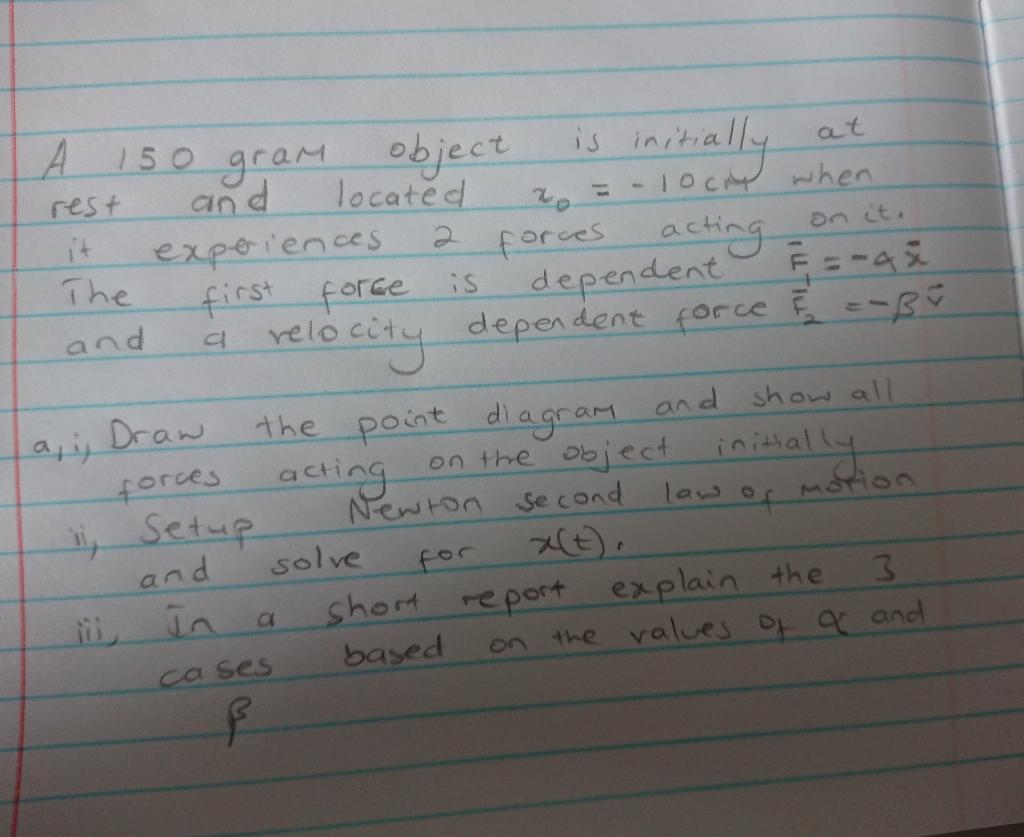 A 150 gram object is initially at
rest and located x₀ = -10cm when
it experiences 2 forces acting on it.
The first force is dependent F̄₁ = -αx̄
and a velocity dependent force F̄₂ = -βv̄
a, i, Draw the point diagram and show all
forces acting on the object initially
ii, Setup Newton second law of motion
and solve for x(t).
iii, In a short report explain the 3
cases based on the values of α and
β